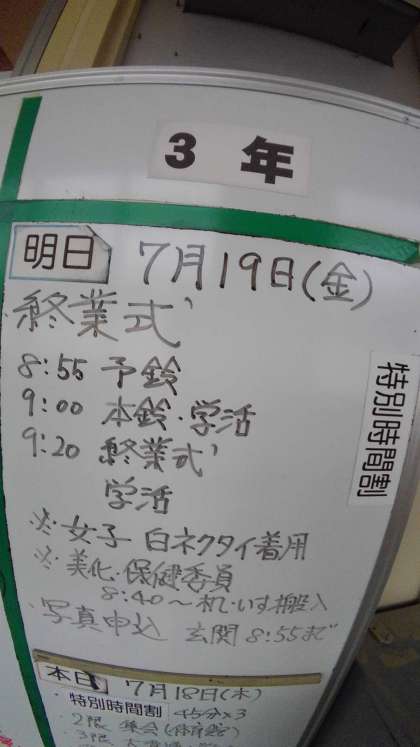 3 年
明日 7月19日(金)
終業式
特別時間割
8:55 予鈴
9:00 本鈴・学活
9:20 終業式
学活
※女子 白ネクタイ着用
※美化・保健委員
8:40～机・いす搬入
・写真申込 玄関 8:55まで
本日 7月18日(木)
特別時間割 45分×3
2限 集会(体育館)
3限